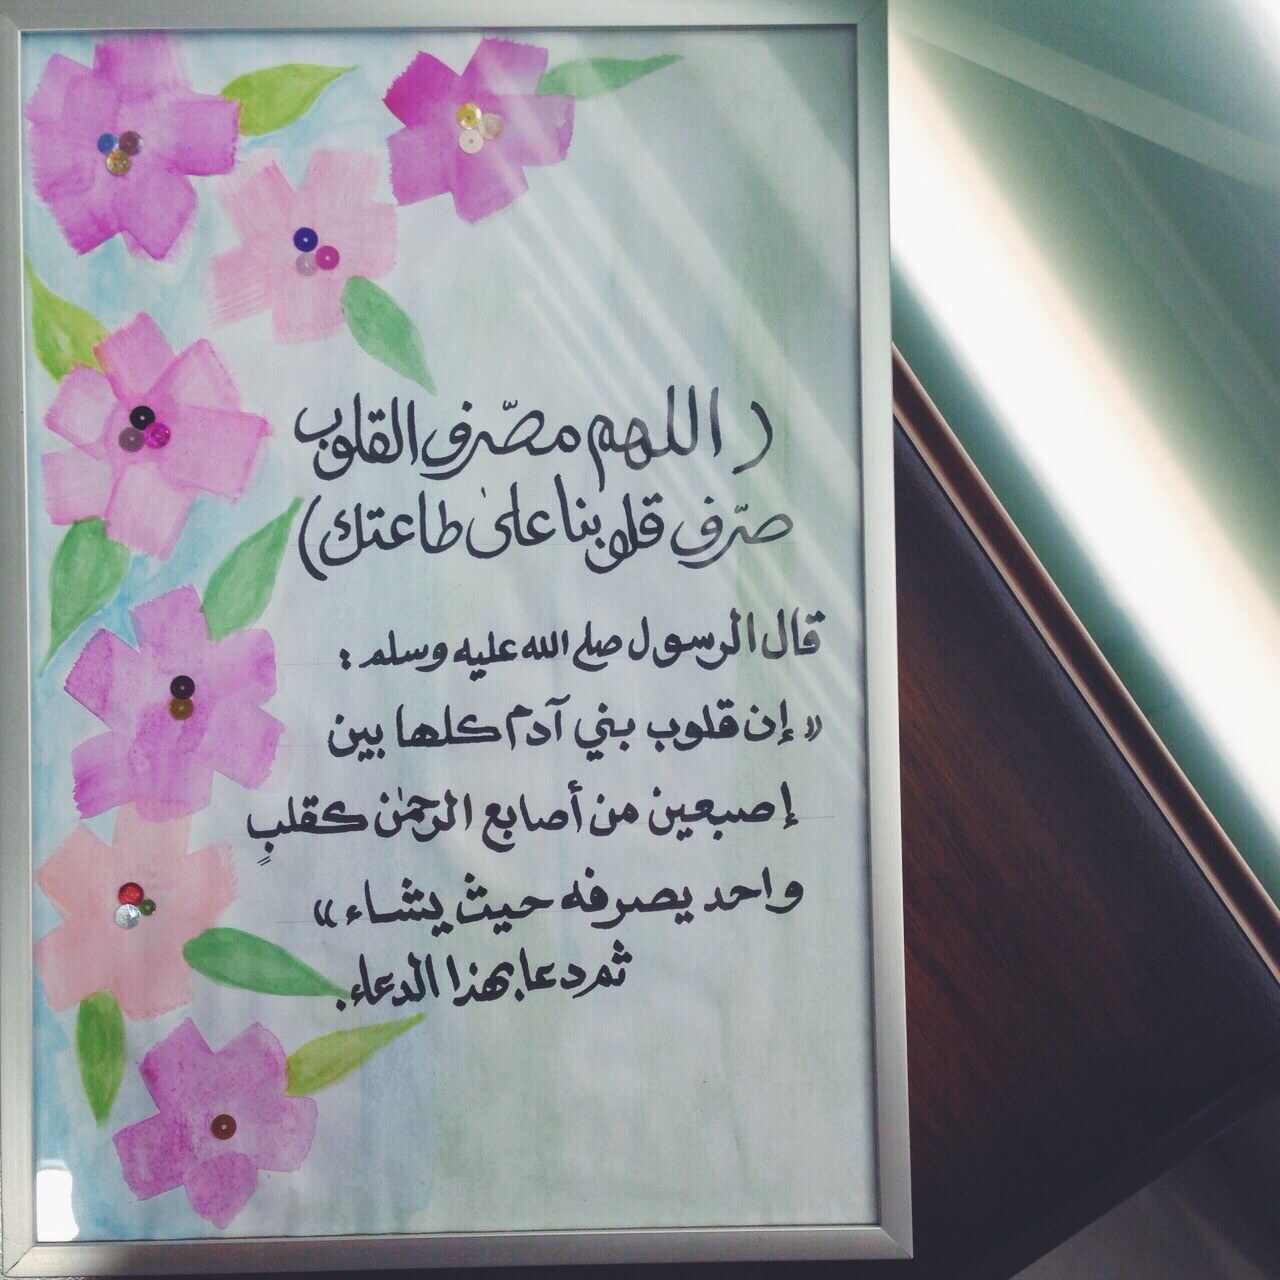 ( اللهم مصّرف القلوب
صرّف قلوبنا على طاعتك)
قال الرسول صلى الله عليه وسلم :
« إن قلوب بني آدم كلها بين
إصبعين من أصابع الرحمٰن كقلبٍ
واحد يصرفه حيث يشاء »
ثم دعا بهذا الدعاء.